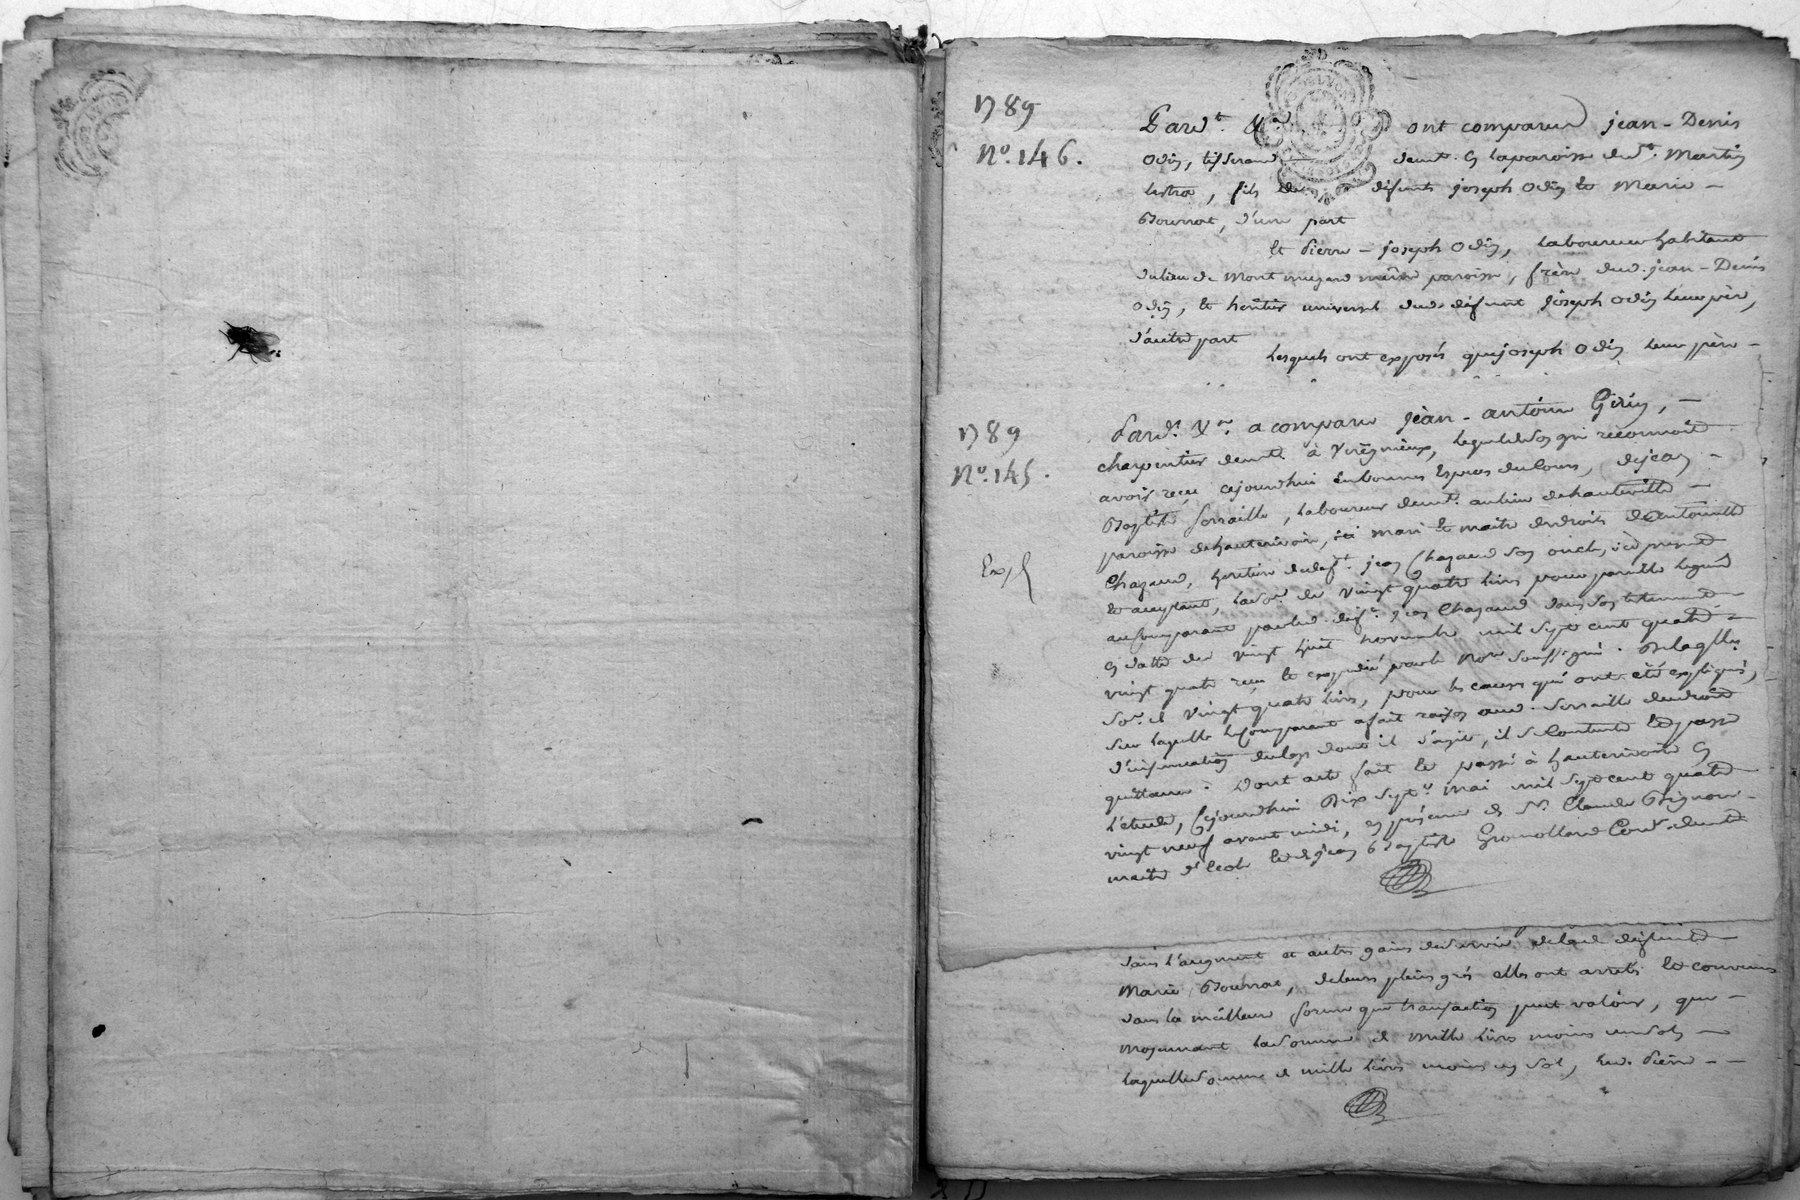 1789
N.o 146.
Pard.t &.a ont comparu jean-Denis
Odin, tisserand demt. en la paroisse de St. Martin
lestra, fils de défunts joseph Odin et Marie
Bournat, d'une part
Et Pierre-joseph Odin, laboureur habitant
du lieu de Mont même paroisse, frère dud. jean-Denis
Odin, et héritier universel dud. défunt joseph Odin leur père,
d'autre part
Lesquels ont exposés que joseph Odin leur père
1789
N.o 145.
Expé
Pard.t &.a a comparu jean-antoine Girin,
charpentier demt. à Virigneux, lequel de son gré reconnoit
avoir reçu cejourd'hui en bonnes Espèces du Cours, de jean
Baptiste Serraille, laboureur demt. au lieu de hauteville
paroisse de hauterivoire, mari et maitre des droits d'antoinette
Chazaud, héritière dud. deft. jean Chazaud son oncle, ici présent
et acceptant, la so.e de vingt quatre livres pour pareille léguée
au Comparant par led. def.t jean Chazaud dans son testament
en datte du vingt huit novembre mil sept cent quatre
vingt quatre reçu et expédié par le No.re soussigné. De laq.lle
so.e de vingt quatre livres, pour les causes qui ont été expliqués,
sur laquelle le Comparant a fait raison aud. Serraille du droit
d'insinuation du legs dont il s'agit, il se Contente et passe
quittance. Dont acte fait et passé à hauterivoire en
l'étude, Cejourd'hui Dix sept.e mai mil sept cent quatre
vingt neuf avant midi, en présence de Sr. Claude
maitre d'école et de jean Baptiste demt.
dans l'augment et autres gains de survie de lad. défunte
Marie Bournat, de leurs pleins grés elles ont arretés et convenus
dans la meilleure forme que transaction peut valoir, que
moyennant la somme de mille livres moins un sol
laquelle somme de mille livres moins un sol, led. Pierre